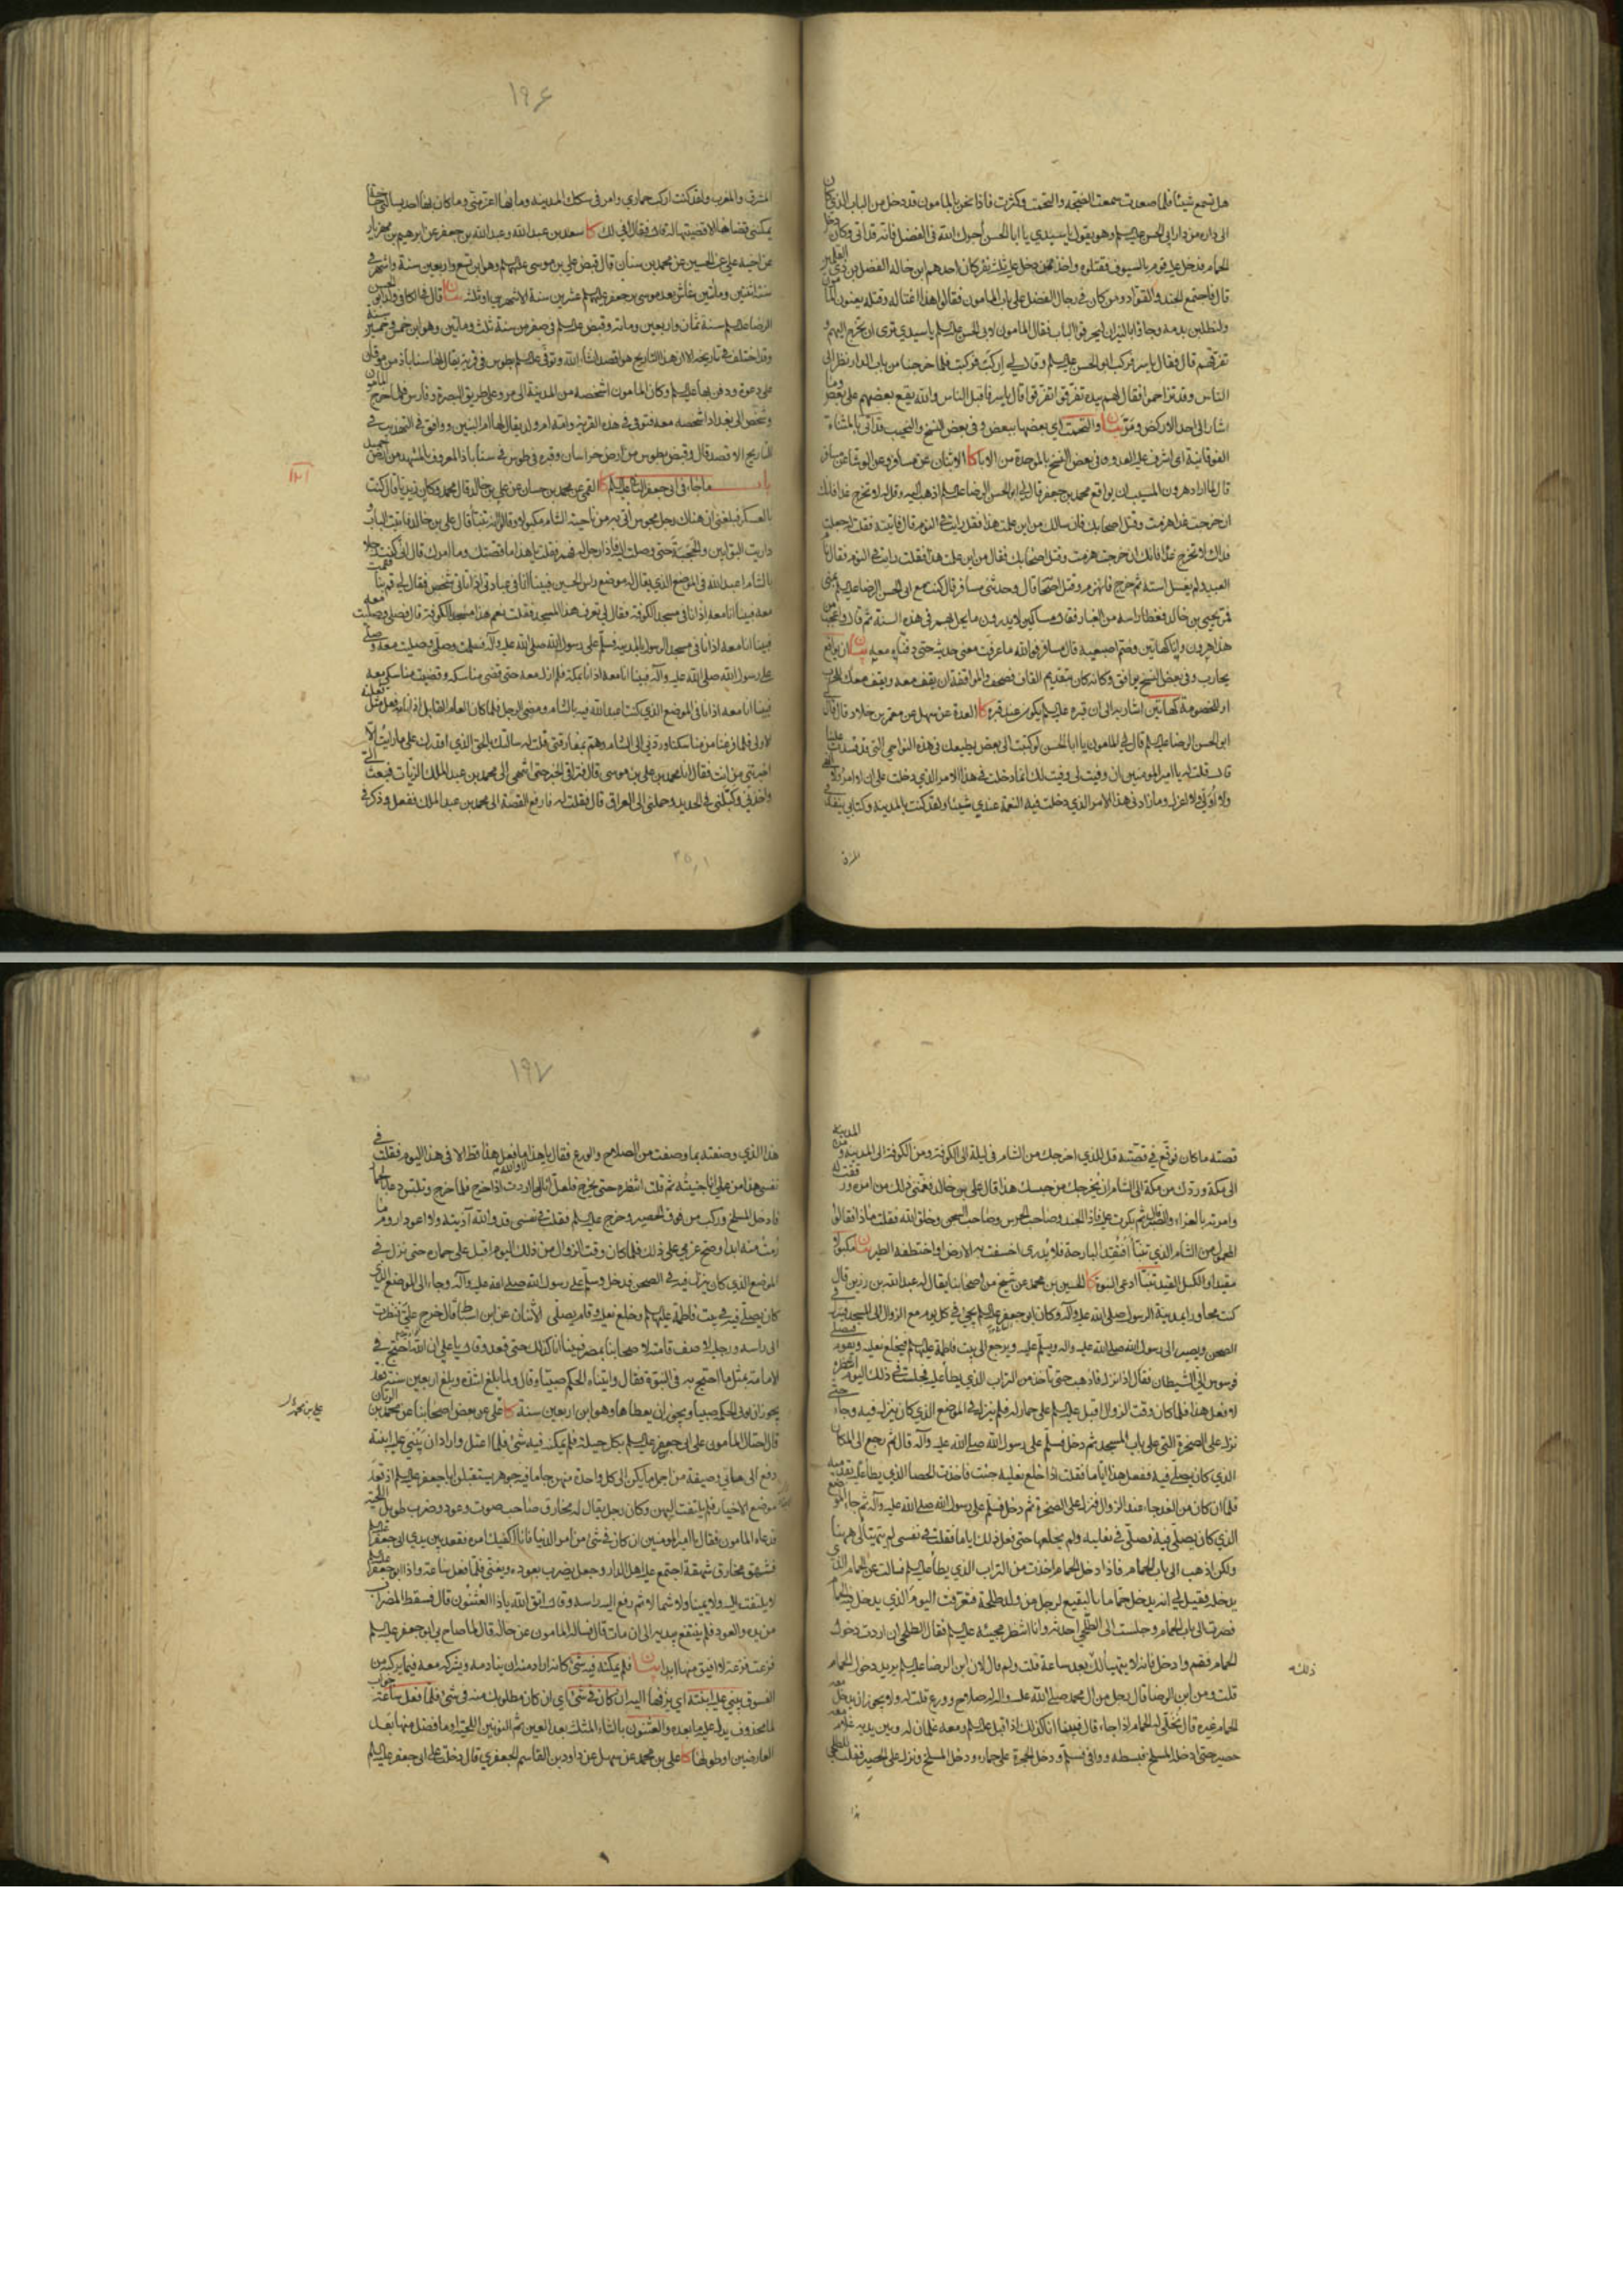 هل تسمع شيئا فلما صعدت سمعت الضجة والتحمت وكثرت فاذا نحن بالمامون قد دخل من الباب الذي كان
الى داره من دار ابي الحسن عليه السلم وهو يقول يا سيدي يا ابا الحسن آجرك الله في الفضل فانه قد اتى وكان دخل
الحمام فدخل عليه قوم بالسيوف فقتلوه واخذ ممن دخل عليه ثلثة نفر كان احدهم ابن خالة الفضل بن ذي القلمين
قال فاجتمع الجند والقواد ومن كان من رجال الفضل على باب المامون فقالوا هذا اغتاله وقتله يعنون المامون
ولنطلبن بدمه وجاؤا بالنيران ليحرقوا الباب فقال المامون لابي الحسن عليه السلم يا سيدي ترى ان تخرج اليهم و
تفرقهم قال فقال ياسر فركب ابو الحسن عليه السلم وقال لي اركب فركبت فلما خرجنا من باب الدار نظر الى
الناس وقد تزاحموا فقال لهم بيده تفرقوا تفرقوا قال ياسر فاقبل الناس والله يقع بعضهم على بعض وما
اشار الى احد الا ركض ومر بيان والتحمت اي بعضها ببعض وفي بعض النسخ والنحيب قد اتى بالمثناة
الفوقانية اي اشرف عليه العدو وفي بعض النسخ بالموحدة من الاباء كا الاثنان عن مسافر وعن الوشاء عن مسافر
قال لما اراد هرون المسيب ان يواقع محمد بن جعفر قال لي ابو الحسن الرضا عليه السلم اذهب اليه وقل له لا تخرج غدا فانك
ان خرجت غدا هزمت وقتل اصحابك فان سالك من اين علمت هذا فقل رايت في النوم قال فاتيته فقلت له جعلت
فداك لا تخرج غدا فانك ان خرجت هزمت وقتل اصحابك فقال من اين علمت هذا فقلت رايت في النوم فقال نام
العبد ولم يغسل استه ثم خرج فانهزم وقتل اصحابه قال وحدثني مسافر قال كنت مع ابي الحسن الرضا عليه السلم بمنى
فمر يحيى بن خالد فغطا راسه من الغبار فقال مساكين لا يدرون ما يحل بهم في هذه السنة ثم قال واعجب من
هذا هرون وانا كهاتين وضم اصبعيه قال مسافر فوالله ما عرفت معنى حديثه حتى دفناه معه بيان ان يواقع
يحارب وفي بعض النسخ يوافق وكانه كان بتقديم القاف فصحف والمواقفة ان يقف معه ويقف معك للحرب
او للخصومة كهاتين اشار به الى ان قبره عليه السلم يكون عند قبره كا العدة عن سهل عن معمر بن خلاد قال قال لي
ابو الحسن الرضا عليه السلم قال لي المامون يا ابا الحسن لو كتبت الى بعض من يطيعك في هذه النواحي التي قد فسدت علينا
قال قلت له يا امير المؤمنين ان وفيت لي وفيت لك انما دخلت في هذا الامر الذي دخلت على ان لا آمر ولا انهى
ولا اولي ولا اعزل وما زادني هذا الامر الذي دخلت فيه النعمة عندي شيئا ولقد كنت بالمدينة وكتابي ينفذ في
المشرق
١٩٦
المشرق والمغرب ولقد كنت اركب حماري وامر في سكك المدينة وما بها اعز مني وما كان بها احد يسالني حاجة
يمكنني قضاها الا قضيتها له قال فقال لي افي لك كا سعد بن عبد الله وعبد الله بن جعفر عن ابرهيم بن مهزيار
عن اخيه علي عن الحسين عن محمد بن سنان قال قبض علي بن موسى عليهما السلم وهو ابن تسع واربعين سنة واشهر في
سنة اثنتين ومائتين عاش بعد موسى بن جعفر عليهما السلم عشرين سنة الا شهرين او ثلثة بيان قال في الكافي ولد ابو الحسن
الرضا عليه السلم سنة ثمان واربعين ومائة وقبض عليه السلم في صفر من سنة ثلث ومائتين وهو ابن خمس وخمسين سنة
وقد اختلف في تاريخه الا ان هذا التاريخ هو اقصد انشاء الله وتوفي عليه السلم بطوس في قرية يقال لها سناباذ من نوقان
على دعوة ودفن بها عليه السلم وكان المامون اشخصه من المدينة الى مرو على طريق البصرة وفارس فلما خرج المامون
وشخص الى بغداد اشخصه معه فتوفي في هذه القرية وامه ام ولد يقال لها ام البنين ووافق في التهذيب في
التاريخ الاقصد قال وقبض بطوس من ارض خراسان وقبره في طوس في سناباذ المعروف بالمشهد من ارض حميد
باب ما جاء في ابي جعفر الثاني عليه السلم كا القمي عن محمد بن حسان عن علي بن خالد قال محمد وكان زيديا قال كنت
بالعسكر فبلغني ان هناك رجل محبوس اتي به من ناحية الشام مكبولا وقالوا انه تنبأ قال علي بن خالد فاتيت الباب و
داريت البوابين والحجبة حتى وصلت اليه فاذا رجل له فهم فقلت يا هذا ما قصتك وما امرك قال اني كنت رجلا
بالشام اعبد الله في الموضع الذي يقال له موضع راس الحسين فبينا انا في عبادتي اذ اتاني شخص فقال لي قم بنا فقمت
معه فبينا انا معه اذا انا في مسجد الكوفة فقال لي تعرف هذا المسجد فقلت نعم هذا مسجد الكوفة قال فصلى وصليت معه
فبينا انا معه اذا انا في مسجد الرسول بالمدينة فسلم على رسول الله صلى الله عليه وآله فسلمت وصلى وصليت معه وصلى
على رسول الله صلى الله عليه وآله فبينا انا معه اذا انا بمكة فلم ازل معه حتى قضى مناسكه وقضيت مناسكي معه
فبينا انا معه اذا انا في الموضع الذي كنت اعبد الله فيه بالشام ومضى الرجل فلما كان العام القابل اذا انا به فعل مثل فعلته
الاولى فلما فرغنا من مناسكنا وردني الى الشام وهم بمفارقتي قلت له سالتك بالحق الذي اقدرك على ما رايت الا
اخبرتني من انت فقال انا محمد بن علي بن موسى قال فتراقى الخبر حتى انتهى الى محمد بن عبد الملك الزيات فبعث الي
واخذني وكبلني في الحديد وحملني الى العراق قال فقلت له فارفع القصة الى محمد بن عبد الملك ففعل وذكر في
قصته ما كان فوقع في قصته قل للذي اخرجك من الشام في ليلة الى الكوفة ومن الكوفة الى المدينة ومن المدينة
الى مكة وردك من مكة الى الشام ان يخرجك من حبسك هذا قال علي بن خالد فغمني ذلك من امره ورققت له
وامرته بالعزاء والصبر قال ثم بكرت عليه فاذا الجند وصاحب الحرس وصاحب السجن وخلق الله فقلت ما ذا فقالوا
المحمول من الشام الذي تنبأ افتقد البارحة فلا يدرى اخسفت به الارض او اختطفه الطير بيان مكبولا
مقيدا والكبل القيد تنبأ ادعى النبوة كا الحسين بن محمد عن شيخ من اصحابنا يقال له عبد الله بن رزين قال
كنت مجاورا بمدينة الرسول صلى الله عليه وآله وكان ابو جعفر عليه السلم يجيء في كل يوم مع الزوال الى المسجد فينزل في
الصحن ويصير الى رسول الله صلى الله عليه وآله ويسلم عليه ويرجع الى بيت فاطمة عليها السلم فيخلع نعليه ويقوم فيصلي
فوسوس الي الشيطان فقال اذا نزل فاذهب حتى تاخذ من التراب الذي يطأ عليه فجلست في ذلك اليوم انتظره
لافعل هذا فلما كان وقت الزوال اقبل عليه السلم على حمار له فلم ينزل في الموضع الذي كان ينزل فيه وجاء حتى
نزل على الصخرة التي على باب المسجد ثم دخل فسلم على رسول الله صلى الله عليه وآله قال ثم رجع الى المكان
الذي كان يصلي فيه ففعل هذا اياما فقلت اذا خلع نعليه جئت فاخذت الحصا الذي يطأ عليه بقدميه
فلما ان كان من الغد جاء عند الزوال فنزل على الصخرة ثم دخل فسلم على رسول الله صلى الله عليه وآله ثم جاء الموضع
الذي كان يصلي فيه فصلى في نعليه ولم يخلعها حتى فعل ذلك اياما فقلت في نفسي لم يتهيأ لي ههنا
ولكن اذهب الى باب الحمام فاذا دخل الحمام اخذت من التراب الذي يطأ عليه فسالت عن الحمام الذي
يدخله فقيل لي انه يدخل حماما بالبقيع لرجل من ولد طلحة فتعرفت اليوم الذي يدخل فيه الحمام
فصرت الى باب الحمام وجلست الى الطلحي احدثه وانا انتظر مجيئه عليه السلم فقال الطلحي ان اردت دخول
الحمام فقم وادخل فانه لا يتهيا لك بعد ساعة قلت ولم قال لان ابن الرضا عليه السلم يريد دخول الحمام
ذلك
قلت ومن ابن الرضا قال رجل من ال محمد صلى الله عليه وآله له صلاح وورع قلت له ولا يجوز ان يدخل معه
الحمام غيره قال نخلي له الحمام اذا جاء قال فبينا انا كذلك اذ اقبل عليه السلم ومعه غلمان له وبين يديه غلام معه
حصير حتى ادخله المسلخ فبسطه ووافى فسلم ودخل الحجرة على حماره ودخل المسلخ ونزل على الحصير فقلت للطلحي
هذا
١٩٧
هذا الذي وصفته بما وصفت من الصلاح والورع فقال يا هذا لا والله ما فعل هذا قط الا في هذا اليوم فقلت في
نفسي هذا من عملي انا جنيته ثم قلت انتظره حتى يخرج فلعلي انال ما اردت اذا خرج فلما خرج وتلبس دعا بالحمار
فادخل المسلخ وركب من فوق الحصير وخرج عليه السلم فقلت في نفسي قد والله آذيته ولا اعود اروم ما
رمت منه ابدا وصح عزمي على ذلك فلما كان وقت الزوال من ذلك اليوم اقبل على حماره حتى نزل في
الموضع الذي كان ينزل فيه في الصحن فدخل وسلم على رسول الله صلى الله عليه وآله وجاء الى الموضع الذي
كان يصلي فيه في بيت فاطمة عليها السلم وخلع نعليه وقام يصلي الاثنان عن ابن اسباط قال خرج علي فنظرت
الى راسه ورجليه لاصف قامته لاصحابنا بمصر فبينا انا كذلك حتى قعد وقال يا علي ان الله احتج في
الامامة بمثل ما احتج به في النبوة فقال واتيناه الحكم صبيا وقال ولما بلغ اشده وبلغ اربعين سنة فقد
يجوز ان يؤتى الحكم صبيا ويجوز ان يعطاها وهو ابن اربعين سنة كا علي عن بعض اصحابنا عن محمد بن الريان
علي بن محمد
قال احتال المامون على ابي جعفر عليه السلم بكل حيلة فلم يمكنه فيه شيء فلما اعتل واراد ان يبني عليه ابنته
دفع الى مائتي وصيفة من اجمل ما يكن الى كل واحدة منهن جاما فيه جوهر يستقبلن ابا جعفر عليه السلم اذ قعد
موضع الاخيار فلم يلتفت اليهن وكان رجل يقال له مخارق صاحب صوت وعود وضرب طويل اللحية
فدعاه المامون فقال يا امير المؤمنين ان كان في شيء من امر الدنيا فانا اكفيك امره فقعد بين يدي ابي جعفر عليه السلم
فشهق مخارق شهقة اجتمع عليه اهل الدار وجعل يضرب بعوده ويغني فلما فعل ساعة واذا ابو جعفر عليه السلم
لا يلتفت اليه ولا يمينا ولا شمالا ثم رفع اليه راسه وقال اتق الله يا ذا العثنون قال فسقط المضراب
من يده والعود فلم ينتفع بيديه الى ان مات قال فساله المامون عن حاله قال لما صاح بي ابو جعفر عليه السلم
فزعت فزعة لا افيق منها ابدا بيان فلم يمكنه فيه شيء كانه اراد منه ان ينادمه ويشركه معه فيما يركبه من
الفسوق يبني عليه ابنته اي يزفها اليه ان كان في شيء اي ان كان مطلوبك منه في شيء فلما فعل ساعة جواب
لما محذوف يدل عليه ما بعده والعثنون بالثاء المثلثة بعد العين ثم النونين اللحية او ما فضل منها بعد
العارضين او طولها كا علي بن محمد عن سهل عن داود بن القاسم الجعفري قال دخلت على ابي جعفر عليه السلم